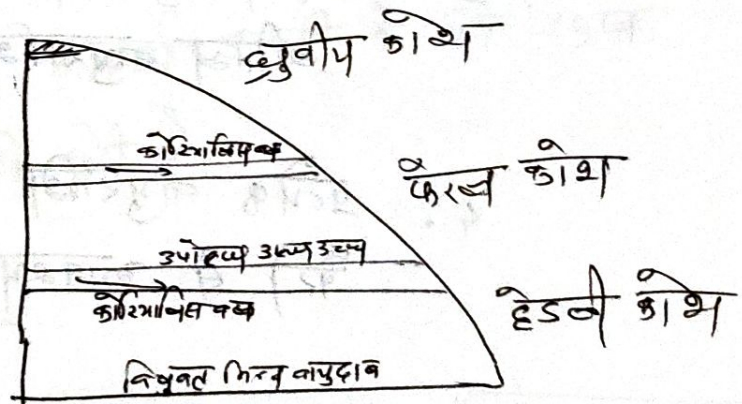 ध्रुवीय कोश
कोरिआलिस बल
फेरल कोश
उपोष्ण उच्च
कोरिआलिस बल
हेडली कोश
विषुवत निम्न वायुदाब